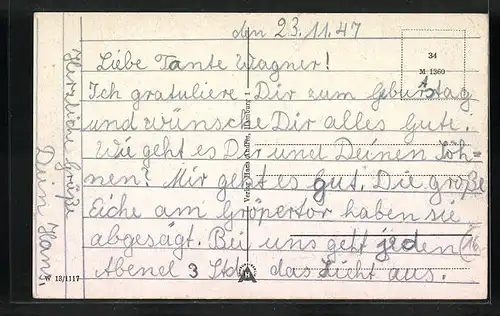 den 23.11.47
Liebe Tante Wagner!
Ich gratuliere Dir zum Geburstag
und wünsche Dir alles Gute.
Wie geht es Dir und Deinen Söh-
nen? Mir geht es gut. Die große
Eiche am Gröpertor haben sie
abgesägt. Bei uns geht jeden
Abend 3 Std. das Licht aus.
Herzliche Grüße
Dein Hans.
34
M 1360
A
W 13/1117